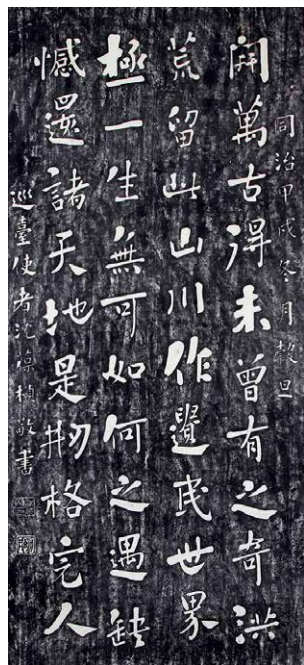 同治甲戌冬月穀旦
開萬古得未曾有之奇洪
荒留此山川作遺民世界
極一生無可如何之遇缺
憾還諸天地是剏格完人
巡臺使者沈葆楨敬書